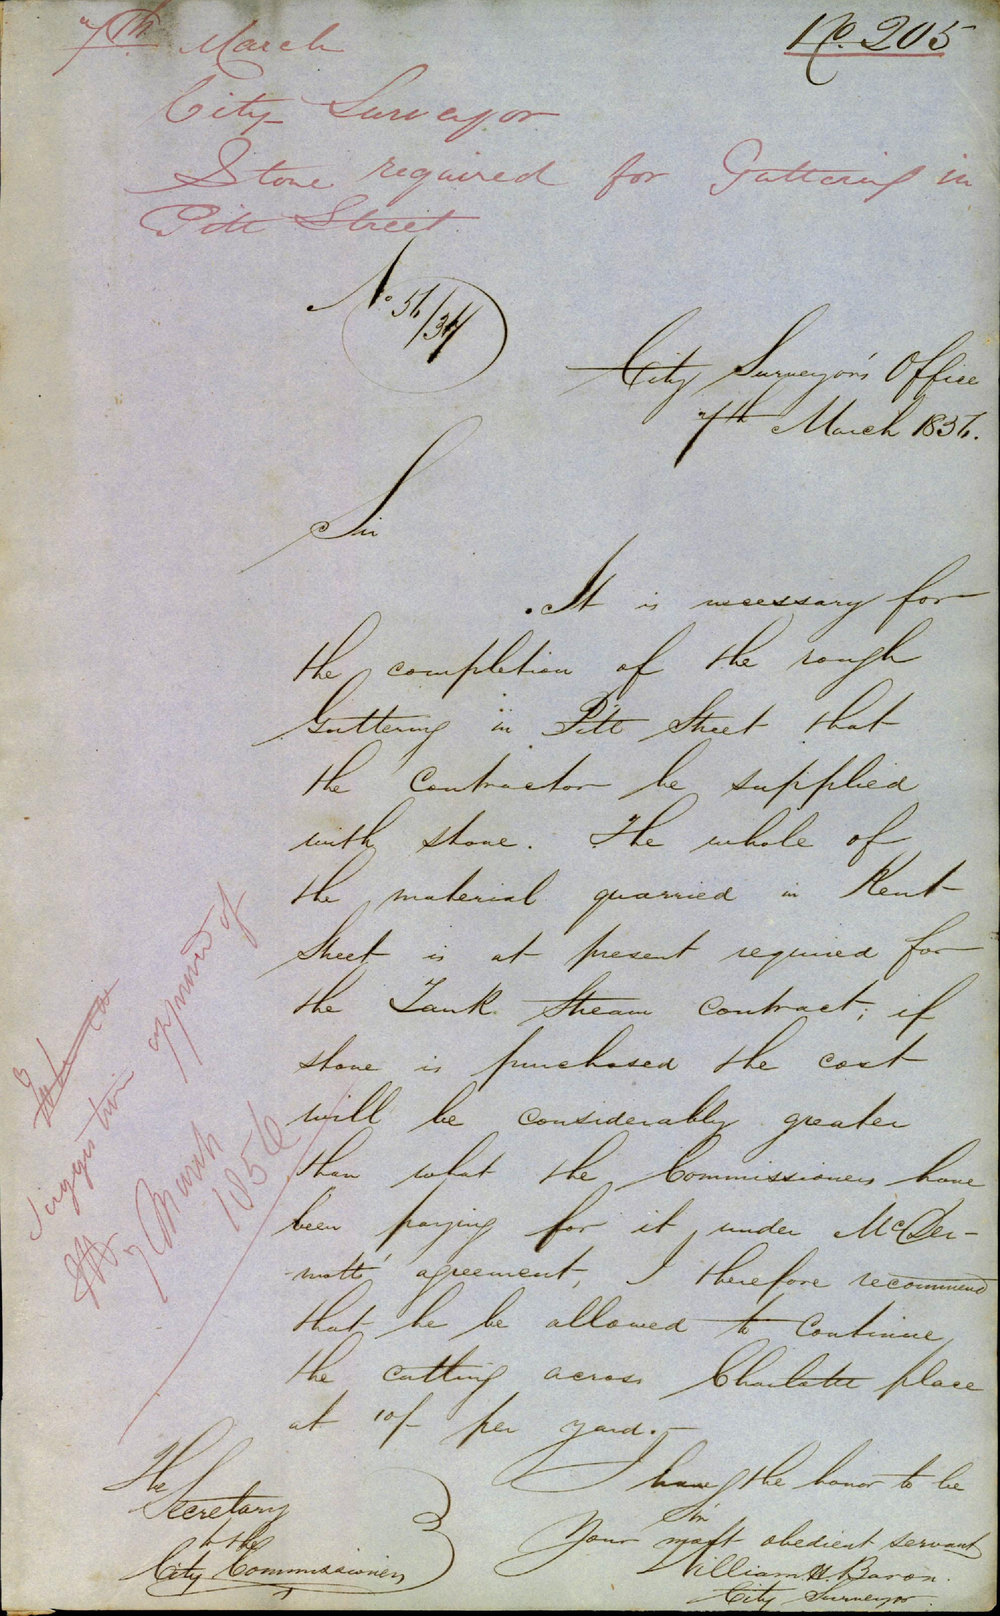 7th March
No. 205
City Surveyor
Stone required for Guttering in
Pitt Street
No. 56/34
City Surveyor's Office
7th March 1856.
Sir
It is necessary for
the completion of the rough
Guttering in Pitt Street that
the Contractor be supplied
with stone. The whole of
the material quarried in Kent
Street is at present required for
the Tank Stream Contract; if
stone is purchased the cost
will be considerably greater
than what the Commissioners have
been paying for it under McDer-
motts' agreement, I therefore recommend
that he be allowed to continue
the cutting across Charlotte place
at 10/- per yard.
I have the honor to be
Sir
Your most obedient servant
William H. Baron.
City Surveyor.
The
Secretary
to the
City Commissioners
Suggestion approved of
7 March
1856